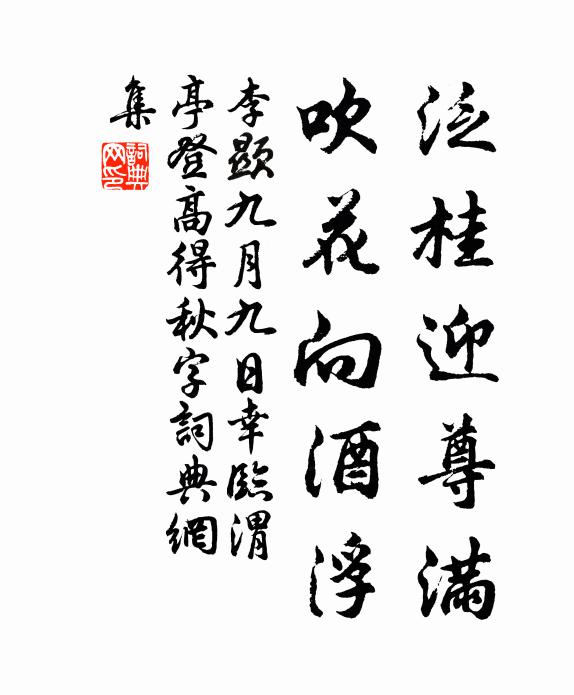 泛桂迎尊滿
吹花向酒浮
李顯九月九日幸臨渭
亭登高得秋字詞典網
集
詞典
网印